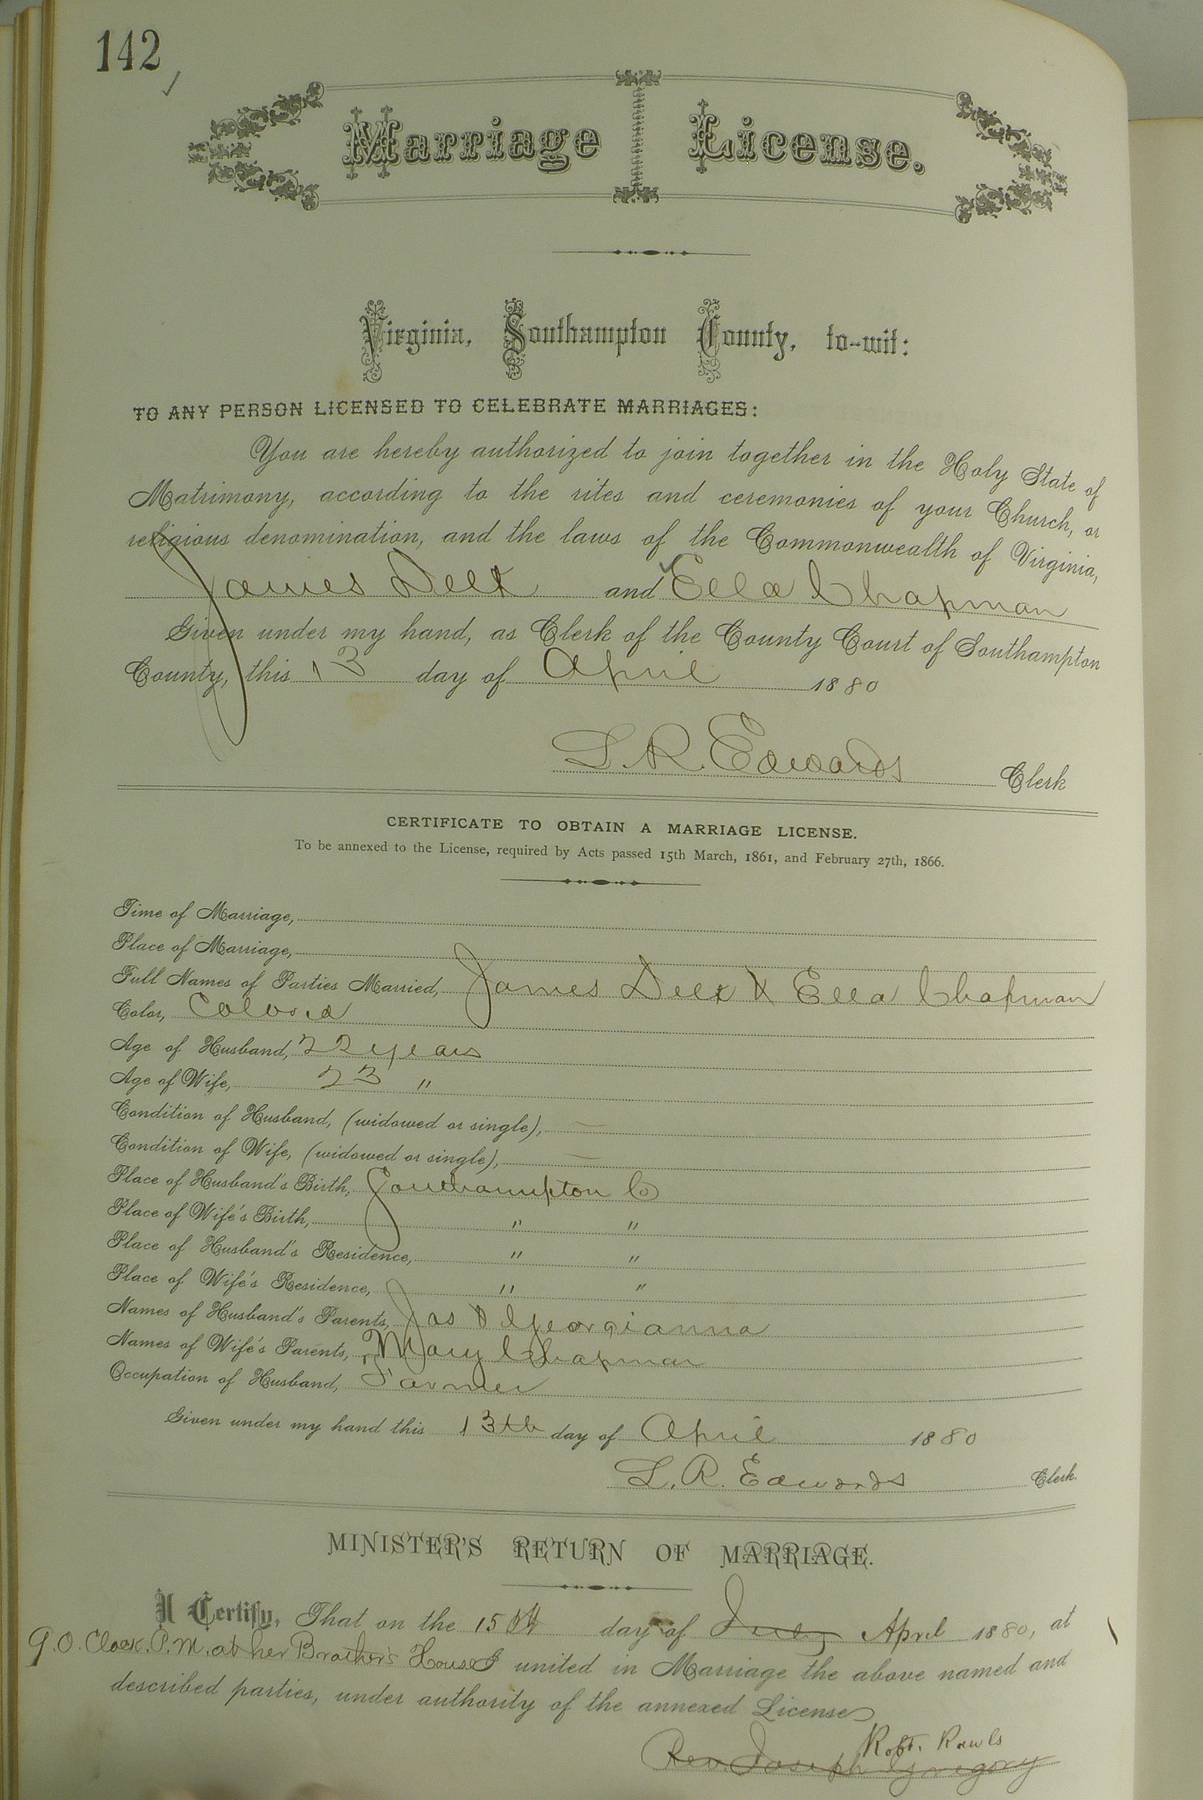 142
Marriage License.
Virginia, Southampton County, to-wit:
TO ANY PERSON LICENSED TO CELEBRATE MARRIAGES:
You are hereby authorized to join together in the Holy State of
Matrimony, according to the rites and ceremonies of your Church, or
religious denomination, and the laws of the Commonwealth of Virginia,
James Delk and Ella Chapman
Given under my hand, as Clerk of the County Court of Southampton
County, this 13 day of April 1880
L. R. Edwards Clerk
CERTIFICATE TO OBTAIN A MARRIAGE LICENSE.
To be annexed to the License, required by Acts passed 15th March, 1861, and February 27th, 1866.
Time of Marriage,
Place of Marriage,
Full Names of Parties Married, James Delk & Ella Chapman
Color, Colored
Age of Husband, 22 years
Age of Wife, 23 "
Condition of Husband, (widowed or single), —
Condition of Wife, (widowed or single), —
Place of Husband's Birth, Southampton Co
Place of Wife's Birth, " "
Place of Husband's Residence, " "
Place of Wife's Residence, " "
Names of Husband's Parents, Jas & Georgianna
Names of Wife's Parents, Mary Chapman
Occupation of Husband, Farmer
Given under my hand this 13th day of April 1880
L. R. Edwards Clerk
MINISTER'S RETURN OF MARRIAGE.
I Certify, That on the 15th day of July April 1880, at
9.O.Clock.P.M. at her Brother's House I united in Marriage the above named and
described parties, under authority of the annexed License
Robt. Rawls
Rev. Joseph Gregory